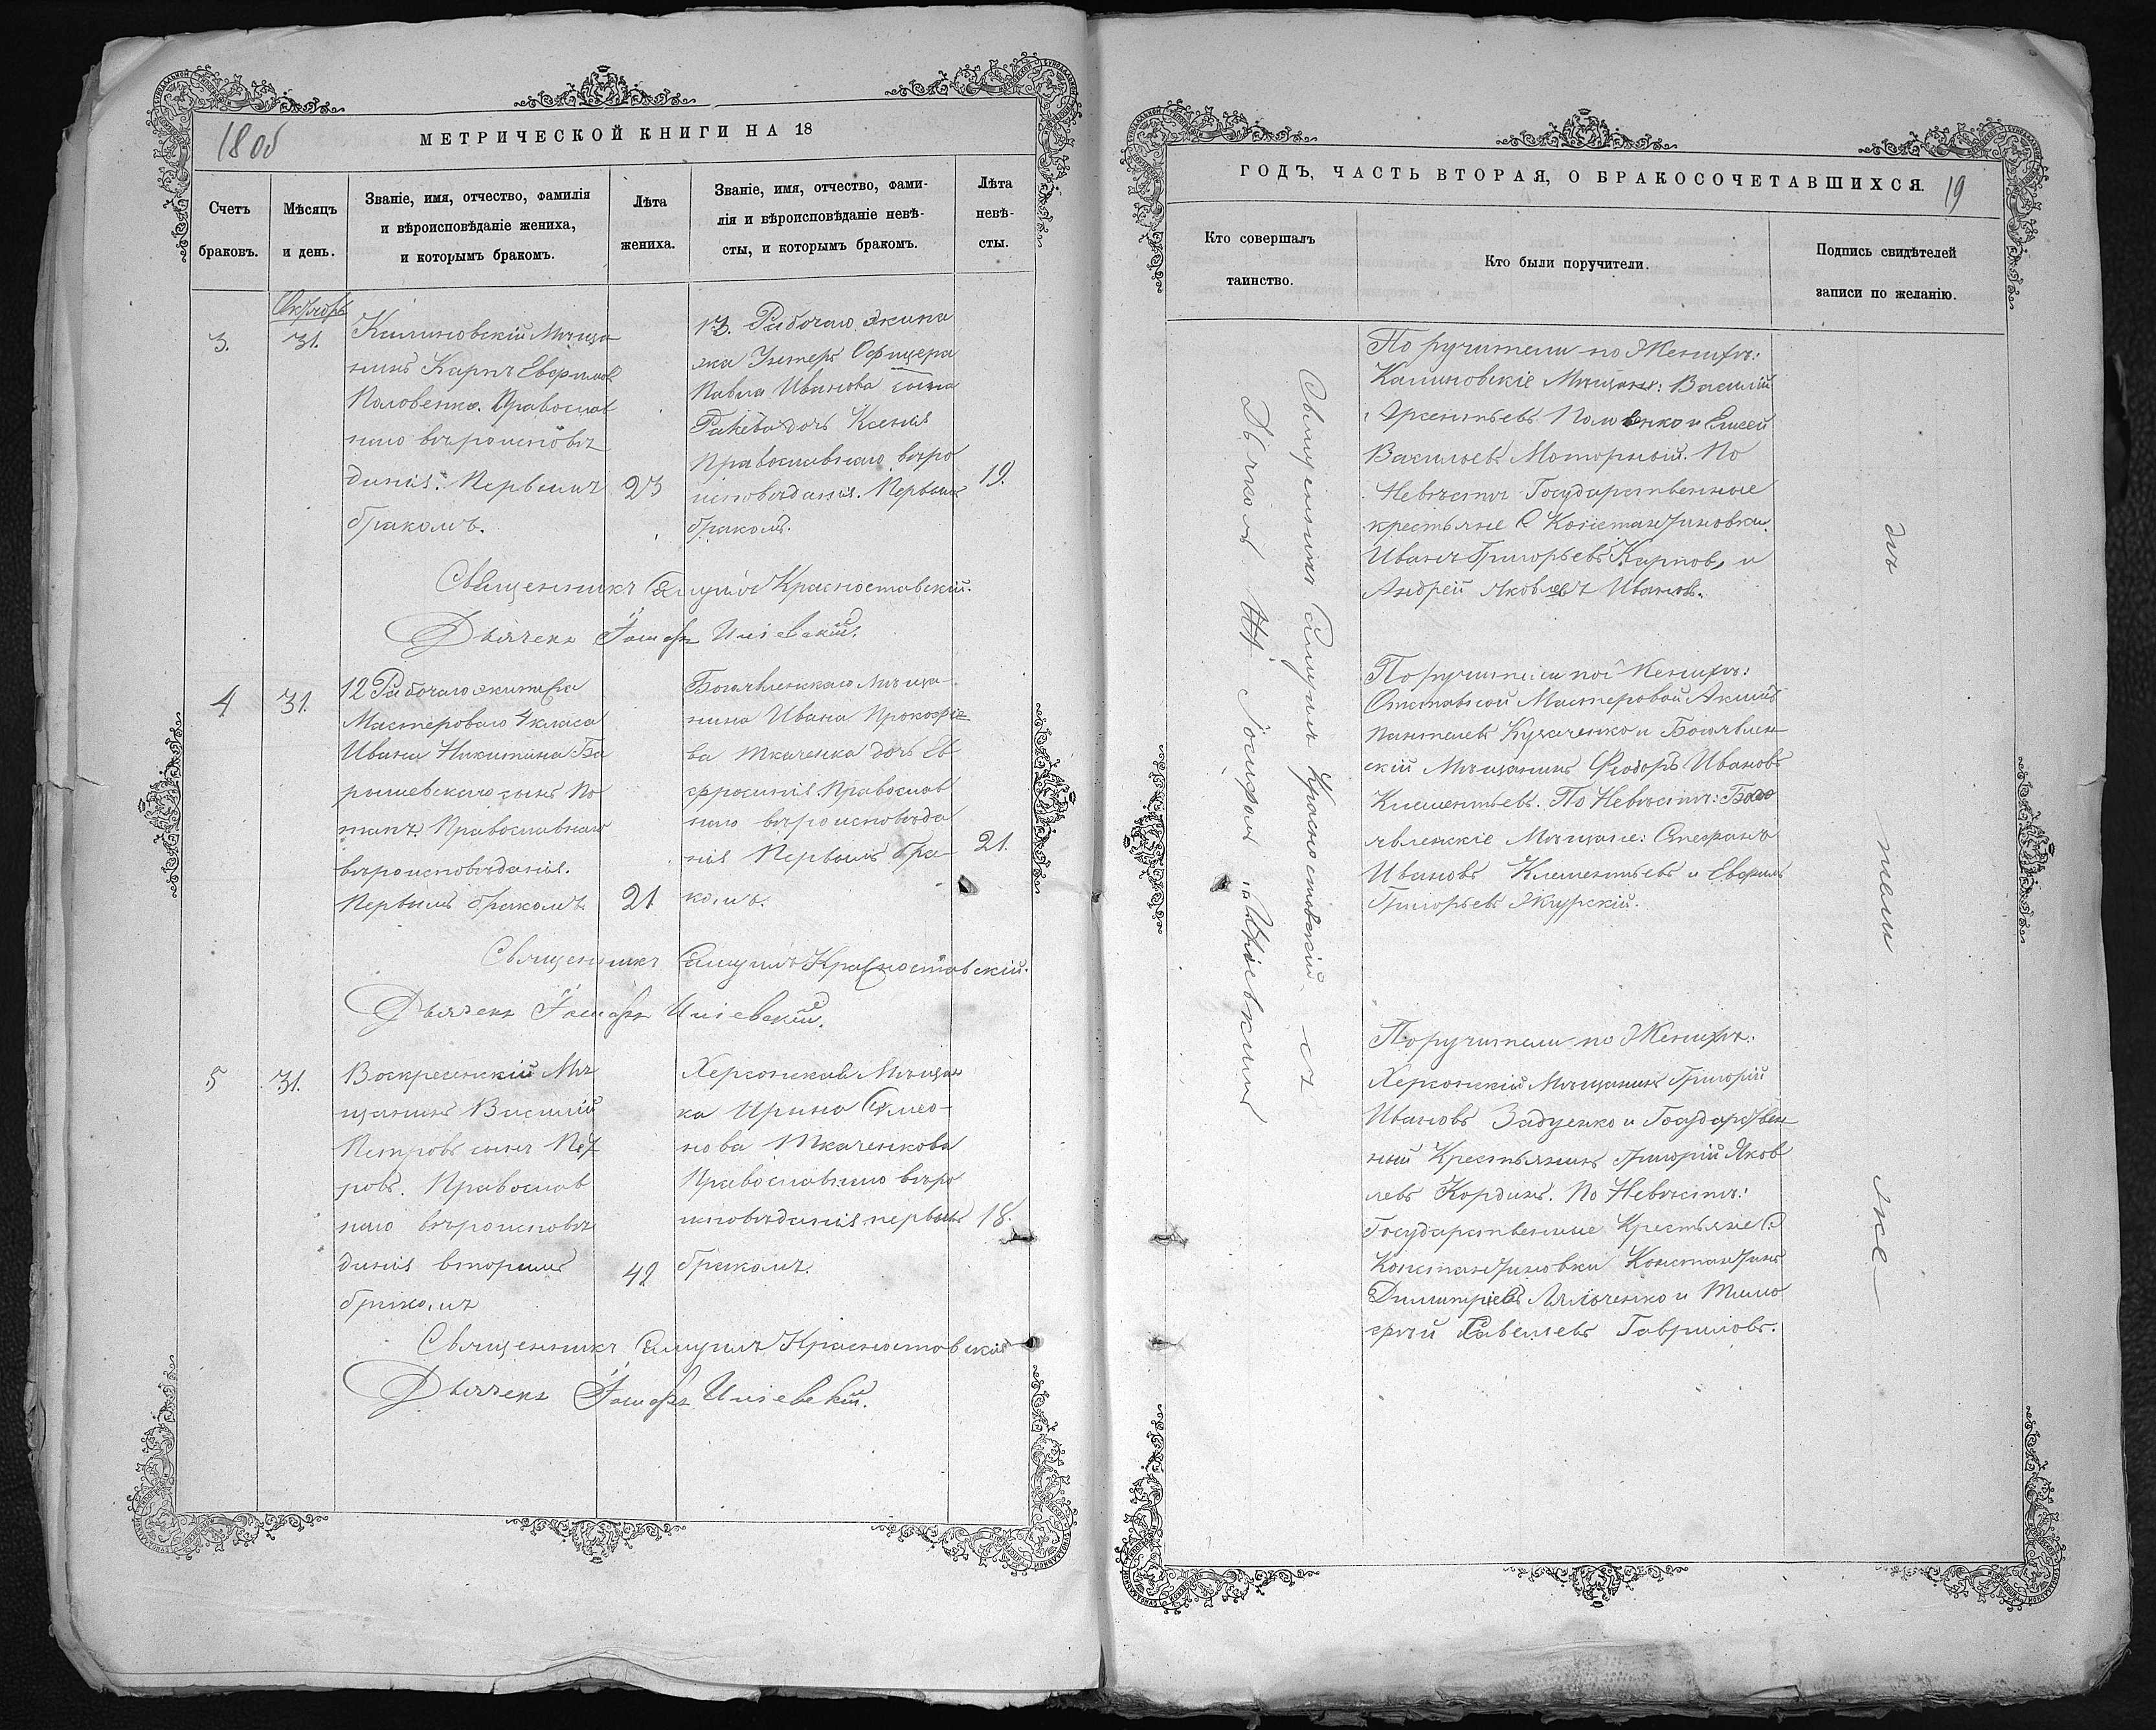 МЕТРИЧЕСКОЙ КНИГИ НА 18
Счетъ
браковъ.
Мѣсяцъ
и день.
Званіе, имя, отчество, фамилія
и вѣроисповѣданіе жениха,
и которымъ бракомъ.
Лѣта
жениха.
Званіе, имя, отчество, фами-
лія и вѣроисповѣданіе невѣ-
сты, и которымъ бракомъ.
Лѣта
невѣ-
сты.
Октябрь
3.
31.
Калиновскій Мѣща
нинъ Карпъ Евфимов
Половенко. Православ
наго вѣроисповѣ
данія. Первымъ
бракомъ.
23
13. Рабочаго экипа
жа Унтеръ Офицера
Павла Иванова сына
Ракева дочь Ксенія
Православнаго вѣро
исповѣданія. Первымъ
бракомъ.
19.
Священникъ Самуилъ Красноставскій.
Дьячекъ Іосифъ
4.
31.
12 Рабочаго экипажа
Мастероваго 4 класа
Ивана Никитина Ба
рышевскаго сынъ По
тапъ Православнаго
вѣроисповѣданія.
Первымъ бракомъ.
21.
Богоявленскаго Мѣща-
нина Ивана Прокофіе
ва Ткаченка дочь Ев
фросинія. Православ
наго вѣроисповѣда
нія Первымъ бра-
комъ.
21.
Священникъ Самуилъ Красноставскій.
Дьячекъ Іосифъ
5
31.
Воскресенскій Мѣ
щанинъ Василій
Петровъ сынъ Пет
ровъ. Православ
наго вѣроисповѣ
данія вторымъ
бракомъ
42
Херсонская Мѣщан
ка Ирина Симео-
нова Ткаченкова
Православнаго вѣро
исповѣданія первымъ
бракомъ.
18.
Священникъ Самуилъ Красноставскій
Дьячекъ Іосифъ
ГОДЪ, ЧАСТЬ ВТОРАЯ, О БРАКОСОЧЕТАВШИХСЯ.
19
Кто совершалъ
таинство.
Кто были поручители.
Подпись свидѣтелей
записи по желанію.
Священникъ Самуилъ Красноставскій съ
Дьячкомъ Іосифомъ
Поручители по Женихѣ:
Калиновскіе Мѣщане: Василій
Арсентьевъ Половенко и Елисей
Васильевъ Моторный. По
Невѣстѣ Государственные
крестьяне С. Константиновки.
Иванъ Григорьевъ Карповъ, и
Андрей Яковлевъ Ивановъ.
Поручители по Женихѣ:
Отставной Мастеровой Акимъ
Пантелевъ и Богоявлен
скій Мѣщанинъ Феодоръ Ивановъ
Клементьевъ. По Невѣстѣ: Бого
явленскіе Мѣщане: Стефанъ
Ивановъ Клементьевъ и Евфимъ
Григорьевъ Жгурскій.
Поручители по Женихѣ:
Херсонскій Мѣщанинъ Григорій
Ивановъ Задуенко и Государствен
ный Крестьянинъ Григорій Яков
левъ Кординъ. По Невѣстѣ:
Государственные Крестьяне С.
Константиновки Константинъ
Димитріевъ и Тимо
фѣй Савелевъ Гавриловъ.